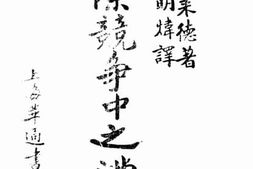 德著
明煒譯
際競爭中之
上海華通書